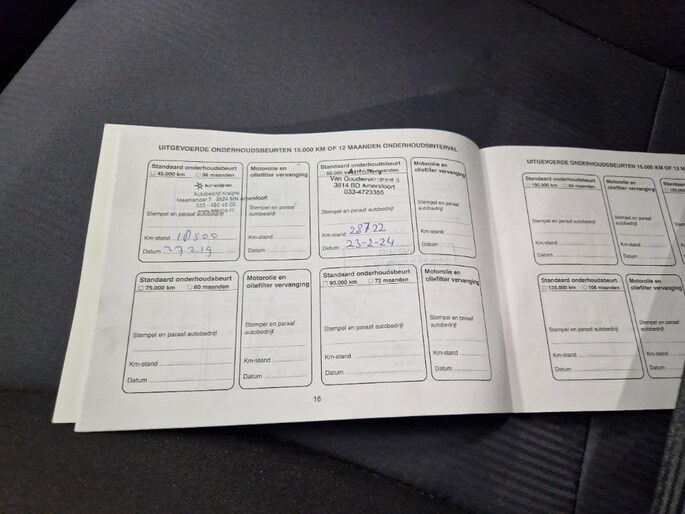 UITGEVOERDE ONDERHOUDSBEURTEN 15.000 KM OF 12 MAANDEN ONDERHOUDSINTERVAL
Standaard onderhoudsbeurt
45.000 km 36 maanden
Autobedrijf
3824 MN Amersfoort
Stempel en paraaf autobedrijf
Km-stand 18500
Datum
Motorolie en
oliefilter vervanging
Stempel en paraaf
autobedrijf
Km-stand
Datum
Standaard onderhoudsbeurt
60.000 km maanden
3814 BD Amersfoort
033-4723355
Stempel en paraaf autobedrijf
Km-stand 28722
Datum 23-2-24
Motorolie en
oliefilter vervanging
Stempel en paraaf
autobedrijf
Km-stand
Datum
Standaard onderhoudsbeurt
75.000 km 60 maanden
Stempel en paraaf autobedrijf
Km-stand
Datum
Motorolie en
oliefilter vervanging
Stempel en paraaf
autobedrijf
Km-stand
Datum
Standaard onderhoudsbeurt
90.000 km 72 maanden
Stempel en paraaf autobedrijf
Km-stand
Datum
Motorolie en
oliefilter vervanging
Stempel en paraaf
autobedrijf
Km-stand
Datum
16
UITGEVOERDE ONDERHOUDSBEURTEN 15.000 KM OF
Standaard onderhoudsbeurt
84 maanden
Stempel en paraaf autobedrijf
Km-stand
Datum
Motorolie en
oliefilter vervanging
Stempel en paraaf
autobedrijf
Km-stand
Datum
Standaard onderhoudsbeurt
135.000 km 108 maanden
Stempel en paraaf autobedrijf
Km-stand
Datum
Motorolie en
oliefilter vervanging
Stempel en paraaf
autobedrijf
Km-stand
Datum